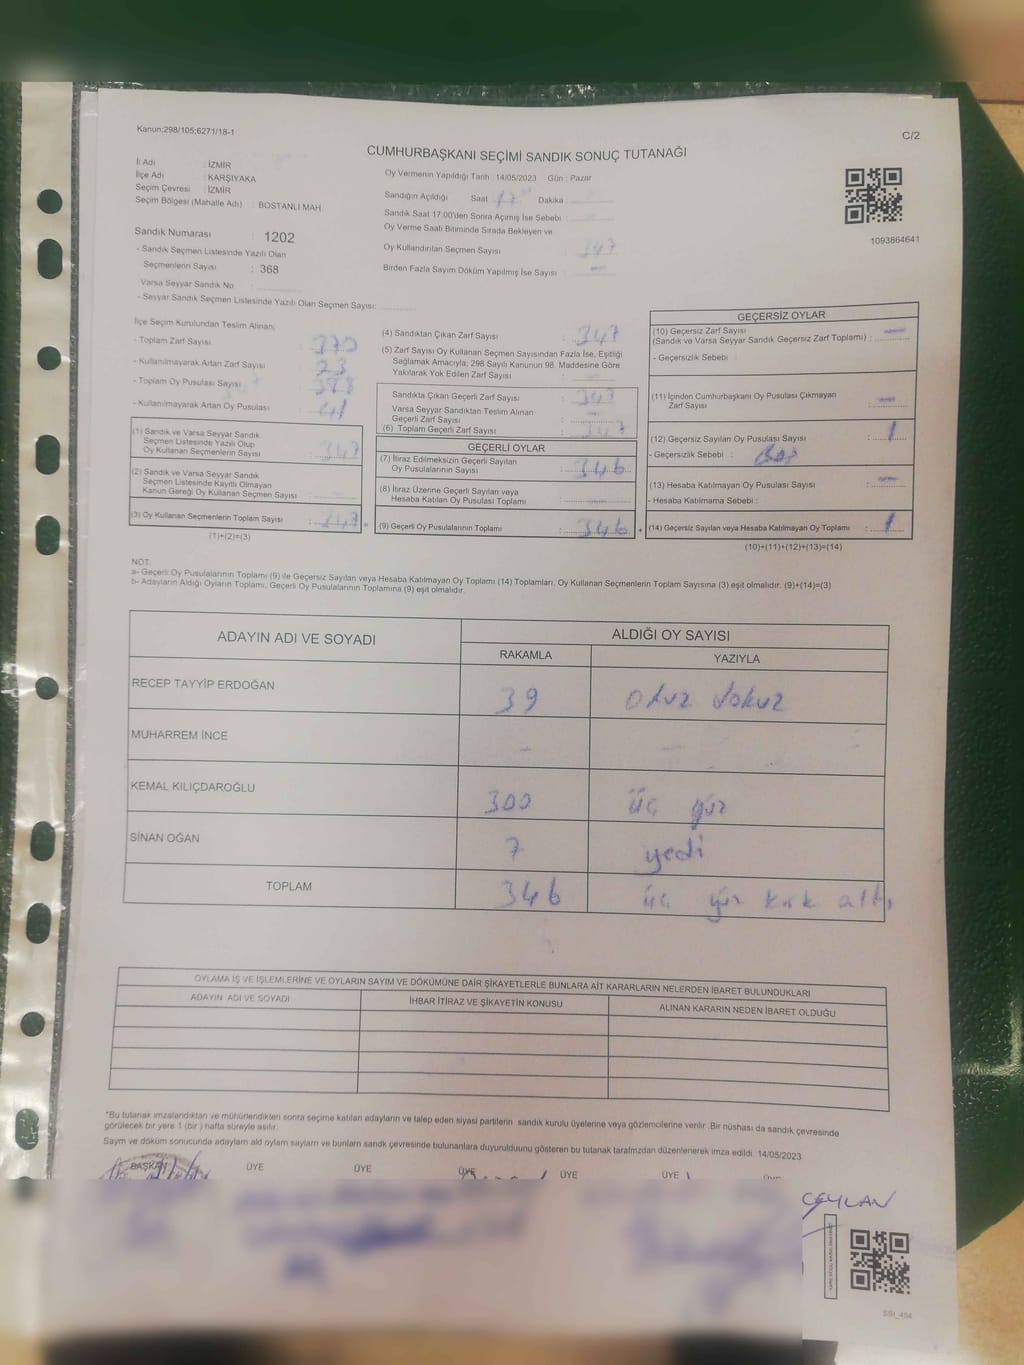 Kanun;298/105;6271/18-1
C/2
CUMHURBAŞKANI SEÇİMİ SANDIK SONUÇ TUTANAĞI
İl Adı : İZMİR
İlçe Adı : KARŞIYAKA
Seçim Çevresi : İZMİR
Seçim Bölgesi (Mahalle Adı) : BOSTANLI MAH.
Sandık Numarası : 1202
- Sandık Seçmen Listesinde Yazılı Olan
Seçmenlerin Sayısı : 368
Varsa Seyyar Sandık No :
- Seyyar Sandık Seçmen Listesinde Yazılı Olan Seçmen Sayısı:
Oy Vermenin Yapıldığı Tarih : 14/05/2023 Gün : Pazar
Sandığın Açıldığı Saat : 17 Dakika :
Sandık Saat 17.00'den Sonra Açımış İse Sebebi :
Oy Verme Saati Bitiminde Sırada Bekleyen ve
Oy Kullandırılan Seçmen Sayısı : 347
Birden Fazla Sayım Döküm Yapılmış İse Sayısı : —
1093864641
İlçe Seçim Kurulundan Teslim Alınan;
- Toplam Zarf Sayısı : 370
- Kullanılmayarak Artan Zarf Sayısı : 23
- Toplam Oy Pusulası Sayısı : 388
- Kullanılmayarak Artan Oy Pusulası : 41
(1) Sandık ve Varsa Seyyar Sandık
Seçmen Listesinde Yazılı Olup
Oy Kullanan Seçmenlerin Sayısı : 347
(2) Sandık ve Varsa Seyyar Sandık
Seçmen Listesinde Kayıtlı Olmayan
Kanun Gereği Oy Kullanan Seçmen Sayısı :
(3) Oy Kullanan Seçmenlerin Toplam Sayısı : 347 =
(1)+(2)=(3)
(4) Sandıktan Çıkan Zarf Sayısı : 347
(5) Zarf Sayısı Oy Kullanan Seçmen Sayısından Fazla İse, Eşitliği
Sağlamak Amacıyla; 298 Sayılı Kanunun 98. Maddesine Göre
Yakılarak Yok Edilen Zarf Sayısı : —
Sandıkta Çıkan Geçerli Zarf Sayısı : 347
Varsa Seyyar Sandıktan Teslim Alınan
Geçerli Zarf Sayısı : —
(6) Toplam Geçerli Zarf Sayısı : 347
GEÇERLİ OYLAR
(7) İtiraz Edilmeksizin Geçerli Sayılan
Oy Pusulalarının Sayısı : 346
(8) İtiraz Üzerine Geçerli Sayılan veya
Hesaba Katılan Oy Pusulası Toplamı :
(9) Geçerli Oy Pusulalarının Toplamı : 346 +
GEÇERSİZ OYLAR
(10) Geçersiz Zarf Sayısı
(Sandık ve Varsa Seyyar Sandık Geçersiz Zarf Toplamı) : —
- Geçersizlik Sebebi :
(11) İçinden Cumhurbaşkanı Oy Pusulası Çıkmayan
Zarf Sayısı : —
(12) Geçersiz Sayılan Oy Pusulası Sayısı : 1
- Geçersizlik Sebebi :
(13) Hesaba Katılmayan Oy Pusulası Sayısı : —
- Hesaba Katılmama Sebebi :
(14) Geçersiz Sayılan veya Hesaba Katılmayan Oy Toplamı : 1
(10)+(11)+(12)+(13)=(14)
NOT:
a- Geçerli Oy Pusulalarının Toplamı (9) ile Geçersiz Sayılan veya Hesaba Katılmayan Oy Toplamı (14) Toplamları, Oy Kullanan Seçmenlerin Toplam Sayısına (3) eşit olmalıdır. (9)+(14)=(3)
b- Adayların Aldığı Oyların Toplamı, Geçerli Oy Pusulalarının Toplamına (9) eşit olmalıdır.
ADAYIN ADI VE SOYADI ALDIĞI OY SAYISI
RAKAMLA YAZIYLA
RECEP TAYYİP ERDOĞAN 39 otuz dokuz
MUHARREM İNCE - -
KEMAL KILIÇDAROĞLU 300 üç yüz
SİNAN OĞAN 7 yedi
TOPLAM 346 üç yüz kırk altı
OYLAMA İŞ VE İŞLEMLERİNE VE OYLARIN SAYIM VE DÖKÜMÜNE DAİR ŞİKAYETLERLE BUNLARA AİT KARARLARIN NELERDEN İBARET BULUNDUKLARI
ADAYIN ADI VE SOYADI İHBAR İTİRAZ VE ŞİKAYETİN KONUSU ALINAN KARARIN NEDEN İBARET OLDUĞU
*Bu tutanak imzalandıktan ve mühürlendikten sonra seçime katılan adayların ve talep eden siyasi partilerin sandık kurulu üyelerine veya gözlemcilerine verilir .Bir nüshası da sandık çevresinde
görülecek bir yere 1 (bir ) hafta süreyle asılır.
Sayım ve döküm sonucunda adayların ald oyların sayların ve bunların sandk çevresinde bulunanlara duyurulduunu gösteren bu tutanak tarafmzdan düzenlenerek imza edildi. 14/05/2023
BAŞKAN ÜYE ÜYE ÜYE ÜYE ÜYE
CEYLAN